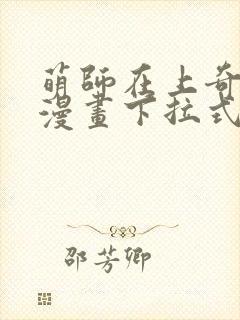 萌師在上奇
漫畫下拉式
邵芳卿